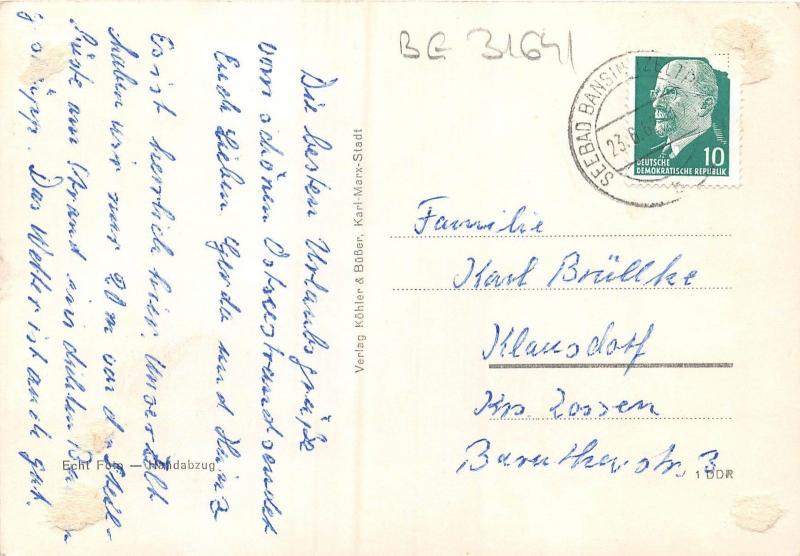 BE 31641
SEEBAD BANSIN
23.6.6
DEUTSCHE
DEMOKRATISCHE REPUBLIK
10
Die besten Urlaubsgrüße
vom schönen Ostseestrand sendet
Euch Lieben Gerda und Heinz
Es ist herrlich hier. Unser Zelt
haben wir nur 20 m von der Steil-
küste am Strand im dichten
Das Wetter ist auch gut.
Verlag Köhler & Büßer, Karl-Marx-Stadt
Familie
Karl Brüllke
Klausdorf
Krs. Zossen
Baruther str. 3
Echt Foto — Handabzug
1 DDR